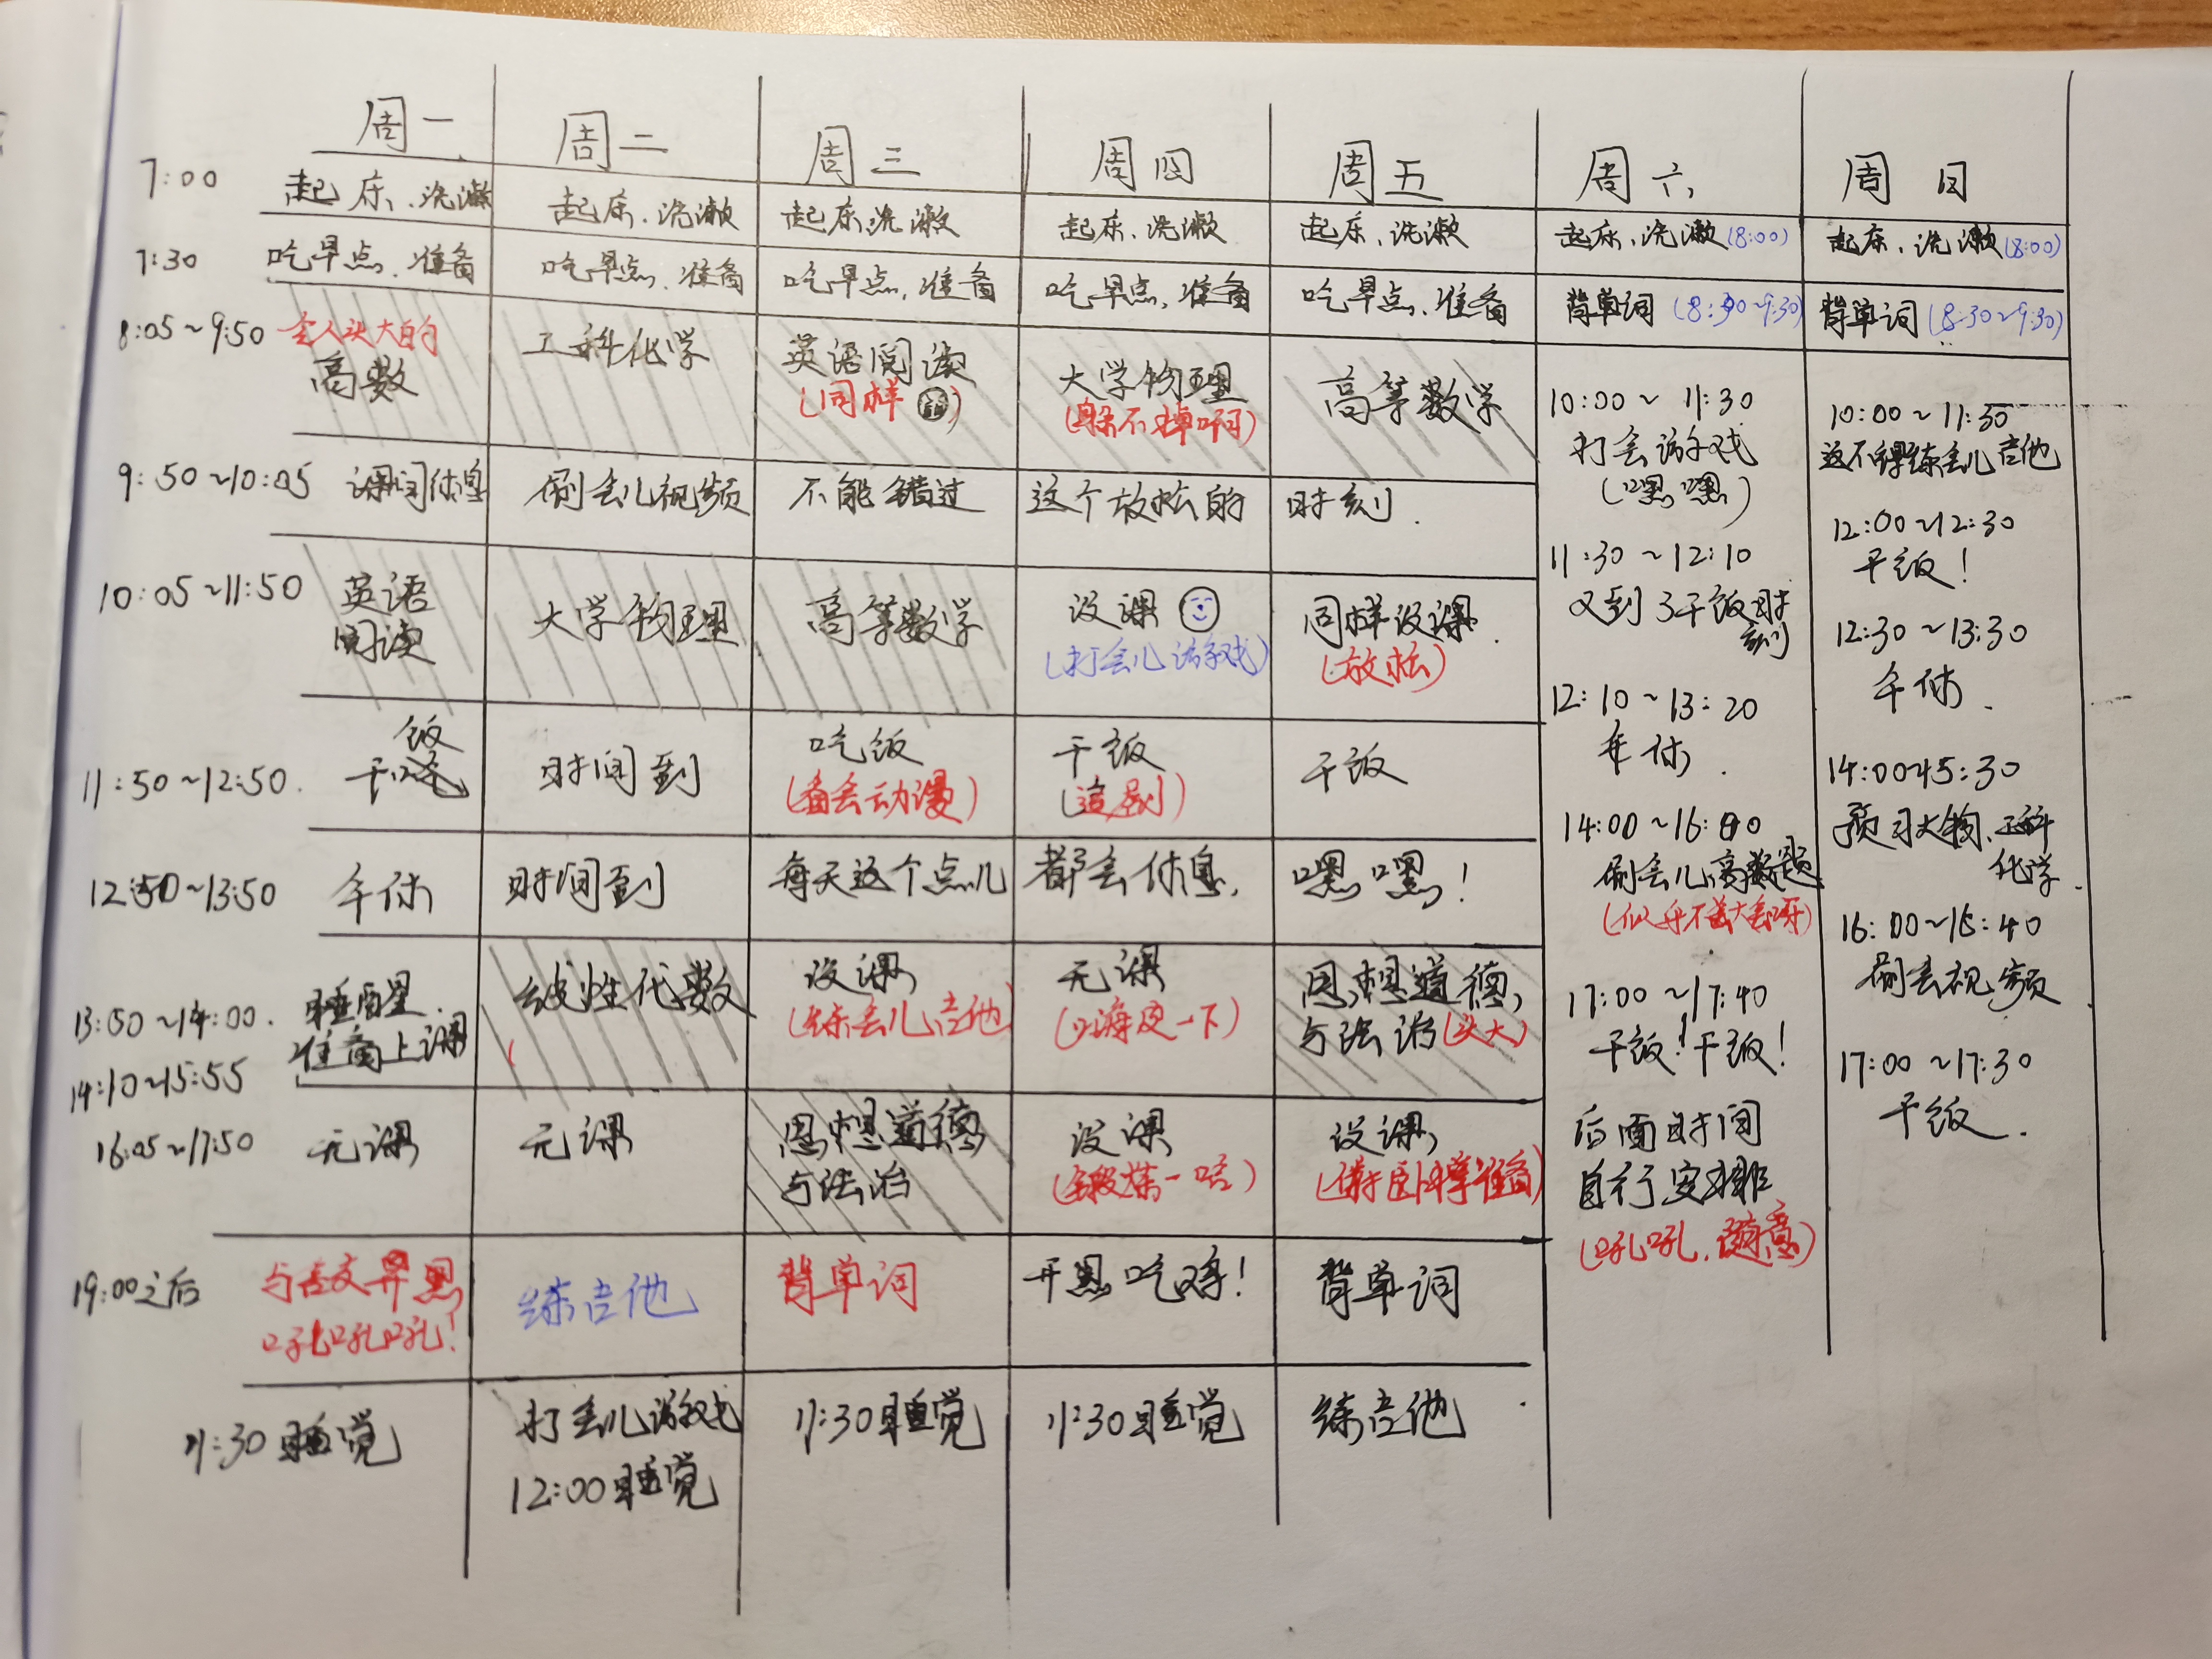 周一 周二 周三 周四 周五 周六 周日
7:00 起床、洗漱 起床、洗漱 起床洗漱 起床、洗漱 起床、洗漱 起床、洗漱(8:00) 起床、洗漱(8:00)
7:30 吃早点、准备 吃早点、准备 吃早点,准备 吃早点,准备 吃早点、准备 背单词(8:30~9:30) 背单词(8:30~9:30)
8:05~9:50 令人头大的 工科化学 英语阅读 大学物理 高等数学
高数 (同样) (躲不掉啊)
9:50~10:05 课间休息 刷会儿视频 不能错过 这个放松的 时刻.
10:05~11:50 英语 大学物理 高等数学 没课 同样没课
阅读 (打会儿游戏) (放松)
11:50~12:50. 干饭 时间到 吃饭 干饭 干饭
(看会动漫) (追剧)
12:50~13:50 午休 时间到 每天这个点儿 都会休息, 嘿嘿!
13:50~14:00. 睡醒. 线性代数 没课 无课 思想道德
准备上课 (练会儿吉他) (浪一下) 与法治(头大)
14:10~15:55
16:05~17:50 无课 无课 思想道德 没课 没课
与法治 (锻炼一哈)
19:00之后 练吉他 背单词 开黑吃鸡! 背单词
吼吼吼!
11:30睡觉 打会儿游戏 11:30睡觉 11:30睡觉 练吉他
12:00睡觉
10:00~11:30
打会游戏
(嘿嘿)
11:30~12:10
又到了干饭时
刻
12:10~13:20
午休.
14:00~16:00
刷会儿高数题
(似乎不太会呀)
17:00~17:40
干饭!干饭!
后面时间
自行安排
(吼吼,随意)
10:00~11:30
这不得练会儿吉他
12:00~12:30
干饭!
12:30~13:30
午休.
14:00~15:30
预习大物、工科
化学.
16:00~16:40
刷会视频
17:00~17:30
干饭.